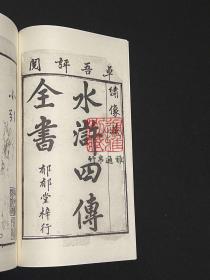 卓吾評閱
繡像藏
水滸四傳
全書
郁郁堂梓行
小引